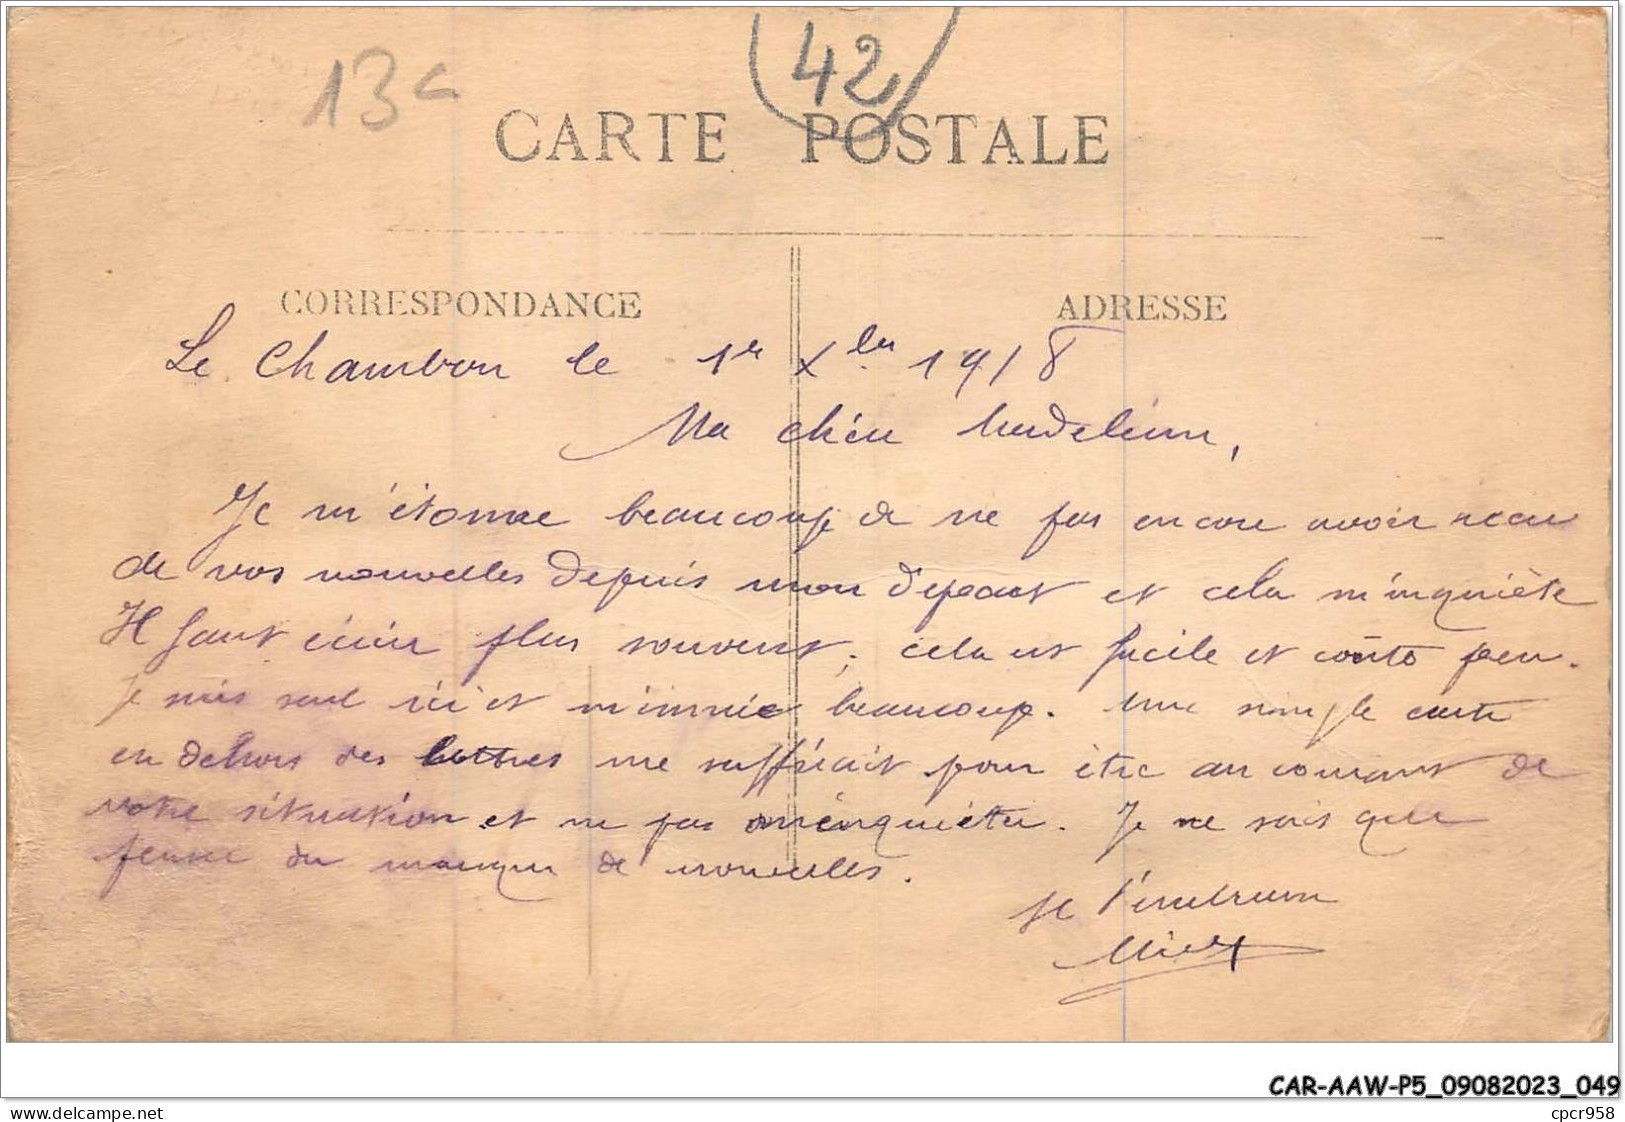 13c
(42)
CARTE POSTALE
CORRESPONDANCE
ADRESSE
Le Chambon le 1er Xbre 1918
Ma chère Madeleine,
Je m'étonne beaucoup de ne pas encore avoir recu
de vos nouvelles depuis mon départ et cela m'inquiète
Il faut écrire plus souvent, cela est facile et coûte peu.
Je suis seul ici et m'ennuie beaucoup. Une simple carte
en dehors des lettres me suffirait pour être au courant de
votre situation et ne pas m'inquiéter. Je ne sais que
penser du manque de nouvelles.
Je t'embrasse
CAR-AAW-P5_09082023_049
www.delcampe.net
cpcr958